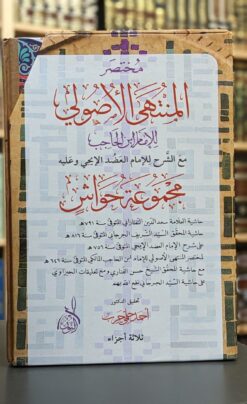 مختصر
المنتهى الأصولي
للإمام ابن الحاجب
مع الشرح للإمام العضد الإيجي وعليه
مجموعة حواش
حاشية العلامة سعد الدين التفتازاني المتوفى سنة ٧٩١ هـ
حاشية المحقق السيد الشريف الجرجاني المتوفى سنة ٨١٦ هـ
على شرح الإمام العضد الإيجي المتوفى سنة ٧٥٦ هـ
لمختصر المنتهى الأصولي للإمام ابن الحاجب المالكي المتوفى سنة ٦٤٦ هـ
مع حاشية المحقق الشيخ حسن الفناري ومع تعليقات الجيزاوي
على حاشية السيد الجرجاني نفع الله بهم
تحقيق الدكتور
أحمد
ثلاثة أجزاء